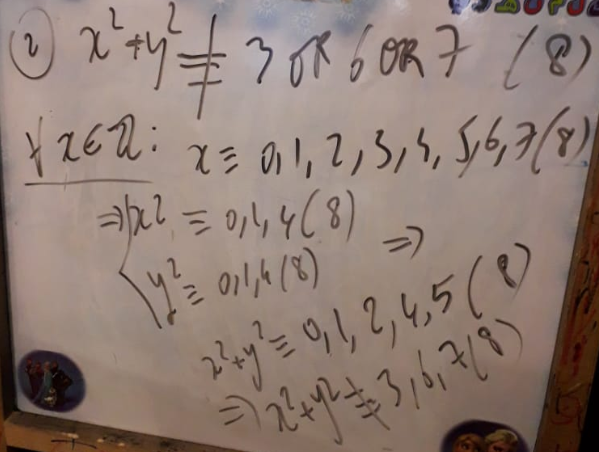 ② x² + y² ≢ 3 OR 6 OR 7 (8)
∀ x ∈ ℤ : x ≡ 0, 1, 2, 3, 4, 5, 6, 7 (8)
⇒ x² ≡ 0, 1, 4 (8)
y² ≡ 0, 1, 4 (8) ⇒
x² + y² ≡ 0, 1, 2, 4, 5 (8)
⇒ x² + y² ≢ 3, 6, 7 (8)